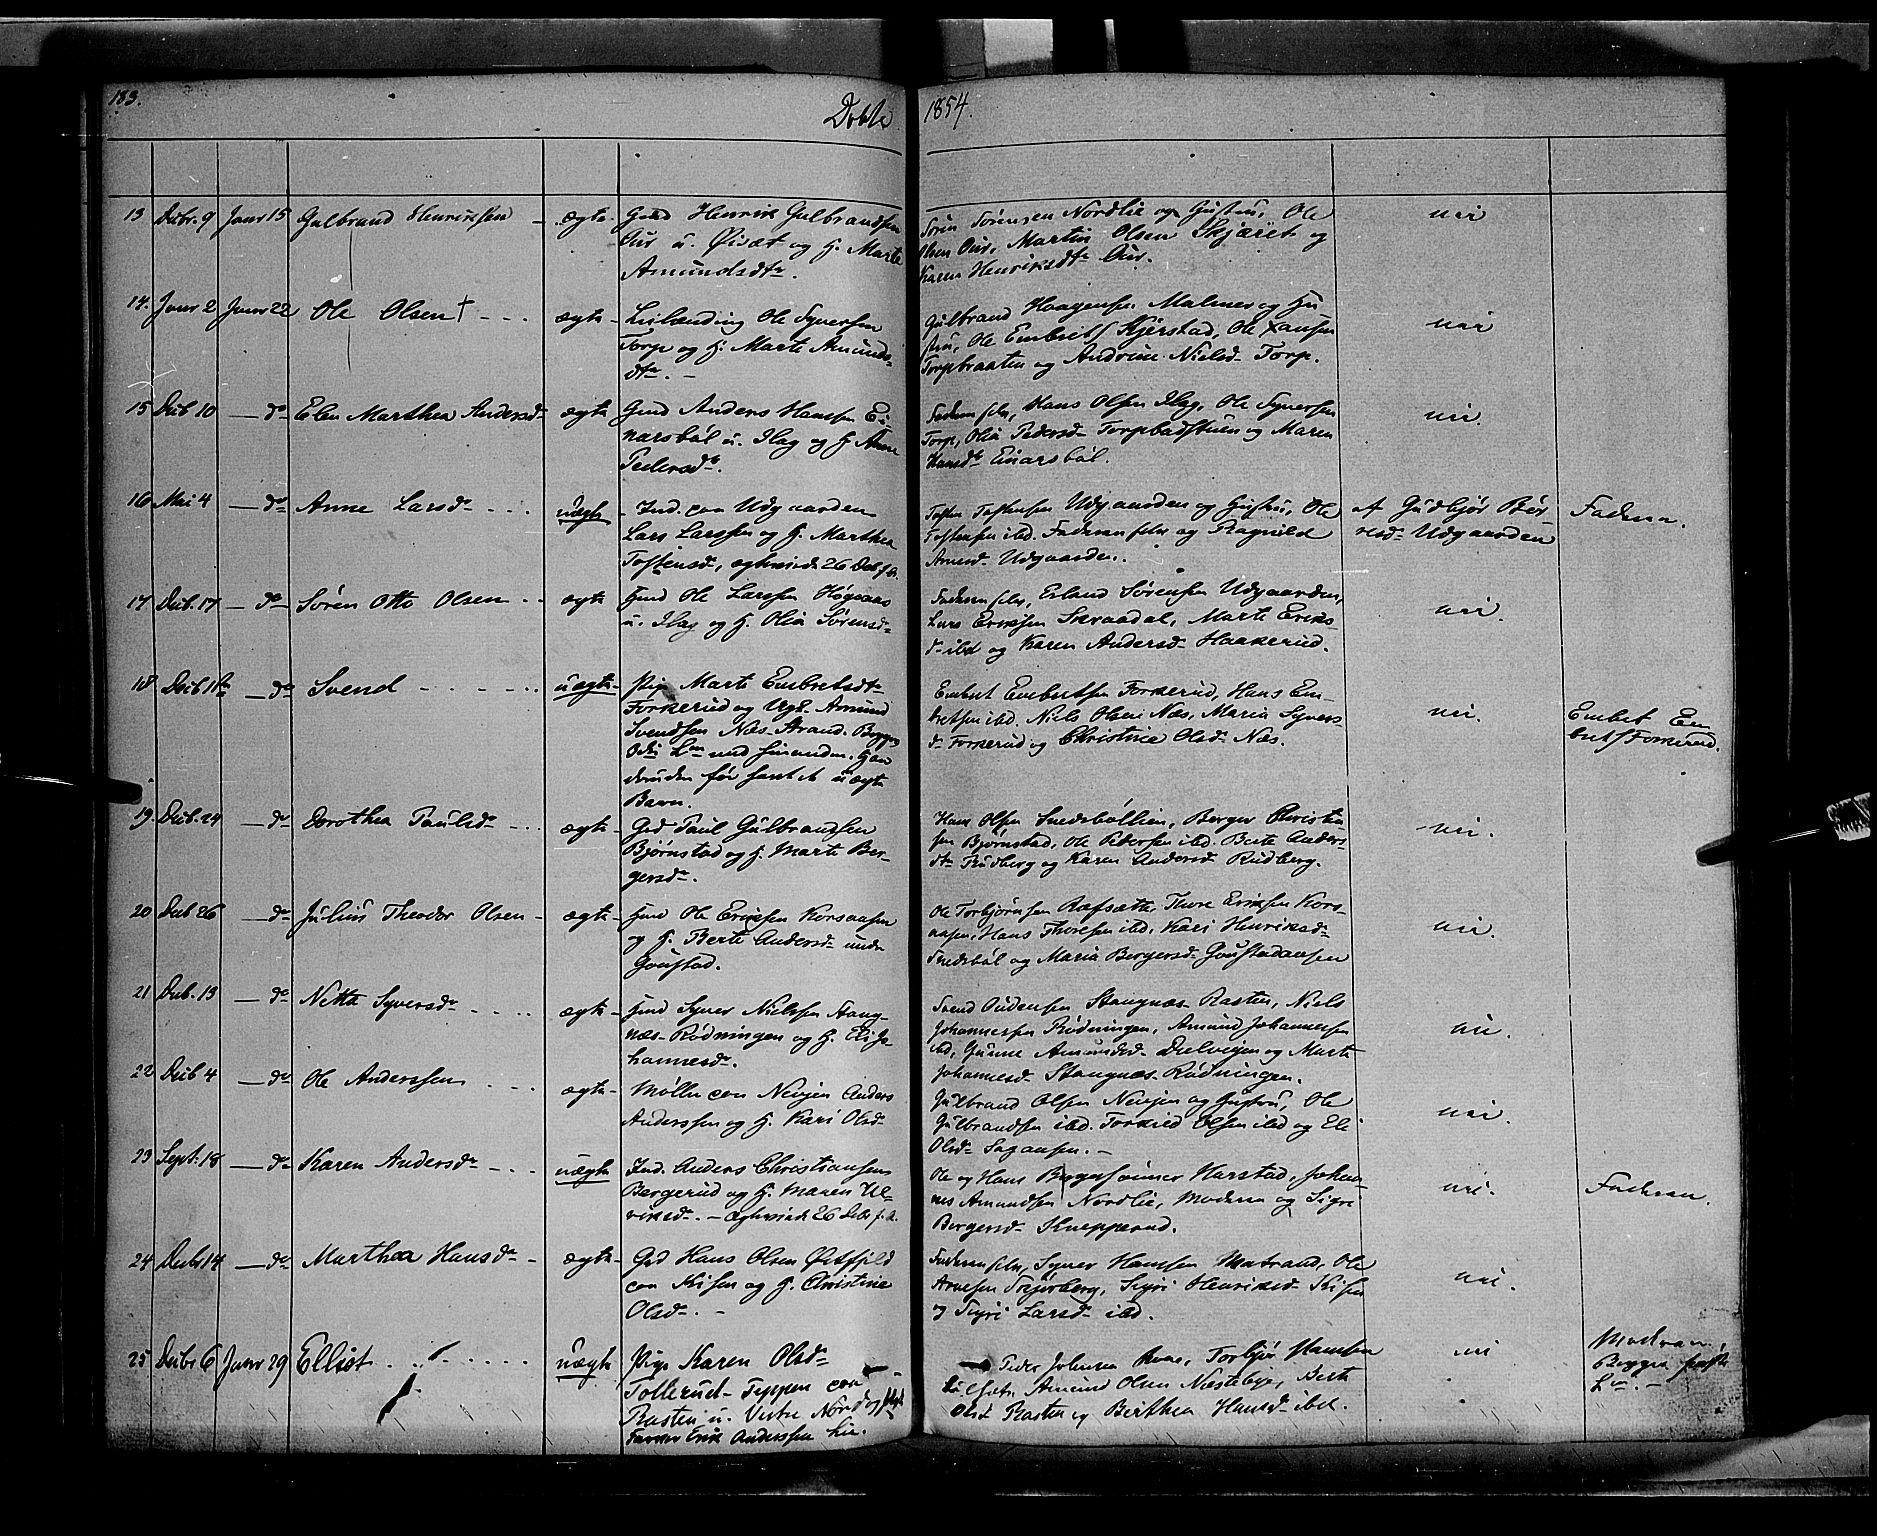 183.
Døbte
1854.
13 Debr. 9 Janr 15 Gulbrand Henriksen - ægte Gmd Henrik Gulbrandsen
Aur u. Øivæt og H. Marte
Amundsdtr.
Søren Sørensen Nordlie og Hustru, Ole
Olsen Aur, Martin Olsen Skjæret og
Karen Henriksdtr Aur.
nei
14. Janr 2 Janr 22 Ole Olsen † - - - ægte Leilænding Ole Syversen
Torp og H. Marte Amunds-
dtr. -
Gulbrand Haagensen Malmer og Hu-
stru, Ole Embrets. Kjerstad, Ole Hansen
Torpbraaten og Andrine Nielsd. Torp.
nei
15 Deb 10 - do Elen Marthea Andersdr ægte Gmd Anders Hansen Ei-
narsbøl u. Ilag og H Anne
Pedersdr.
Faderen selv, Hans Olsen Ilag, Ole Syversen
Torp, Olia Pedersd. Torpbadstuen og Maren
Hansdr Einarsbøl.
nei.
16 Mai 4 - do Anne Larsdr - - - uægte - Ind. paa Udgaarden
Lars Larssen og H. Marthea
Tostensd., ægteviede 26 Deb. f. A.
Tosten Tostensen Udgaarden og Hustru, Ole
Tostensen ibd. Faderen selv og Ragnild
Arnesd. Udgaarden.
af Gudbjør Bør-
resd. Udgaarden
Faderen.
17 Deb. 17 - do Søren Otto Olsen - - ægte Hmd Ole Larssen Høgaas
u. Ilag og H. Olia Sørensd.
Faderen selv, Erland Sørensen Udgaarden,
Lars Eriksen Skraadal, Marte Eriks-
d. ibd og Karen Andersd. Haakerud.
nei.
18 - do Svend - - - - uægte - Pige Marte Embretsdtr
Forkerud og Ugk. Amund
Svendsen Næs-Strand. Begges
Har
desuden før havt et uægte
Barn.
Embret Embretsen Forkerud, Hans Em-
bretsen ibd. Niels Olsen Næs, Maria Syvers-
d. Forkerud og Christine Olsd. Næs.
nei.
Embret Em-
brets. Forkerud.
19. Deb. 24 - do Dorothea Paulsdr - - ægte - Gmd Paul Gulbrandsen
Bjørnstad og H. Marte Ber-
gersdr.
Hans Olsen Snedsbøllien, Berger Christian-
sen Bjørnstad, Ole Pedersen ibd. Berte Anders-
dtr Rudberg og Karen Andersd. Rudberg.
nei.
20 Deb 26 - do Julius Theodor Olsen - ægte - Hmd Ole Eriksen Korsaasen
og H. Berte Andersd. under
Goustad.
Ole Torbjørnsen Rafsæth, Thore Eriksen Kors-
aasen, Hans Thoresen ibd, Kari Henriksd.
Snedsbøl og Maria Bergersd. Goustadaasen
nei.
21 Deb. 13 - do Netta Syversdr - - - - ægte - Hmd Syver Nielssen Stang-
næs-Rødningen og H. Eli Jo-
hannesdr.
Svend Oudensen Stangnæs-Rasten, Niels
Johannessen Rødningen, Amund Johannessen
ibd, Gunne Amundsd. og Marte
Johannesd. Stangnæs-Rødningen.
nei.
22 Deb 4 - do Ole Anderssen - - - ægte - Møller paa Neujen Anders
Anderssen og H. Kari Olsd.
Gulbrand Olsen Neujen og Hustru, Ole
Gulbrandsen ibd. Torkild Olsen ibd og Eli
Olsd. Sagaasen. -
nei.
23 Sept. 18 - do Karen Andersdr - - - uægte - Ind. Anders Christiansen
Bergerud og H. Maren Ul-
riksd. - ægteviede 26 Debr f. A.
Ole og Hans Bergersønner Harstad, Johan-
nes Amundsen Nordlie, Moderen og Sigri
Bergersd. Knepperud.
nei.
Faderen.
24 Debr 14 - do Marthea Hansdr - ægte - Gmd Hans Olsen Østfjeld
paa Kisen og H. Christine
Olsd. -
Faderen selv, Syver Hanssen Matrand, Ole
Arnesen Skjørberg, Sigri Henriksd. Kisen
og Sigri Larsd. ibd.
nei.
25 Debr 6 Janr 29 Elliot - - - - - uægte Pige Karen Olsdr
Tollerud-Teppen paa
Rasten u. Vestre Nord
Fader Erik Anderssen
Peder Johnsen Roae, Torbjør Hansen
Amund Olsen Næsteby, Berte
Olsd Rasten og Berthea Hansd. ibd.
nei
Moderen.
Begges første
L.m. -